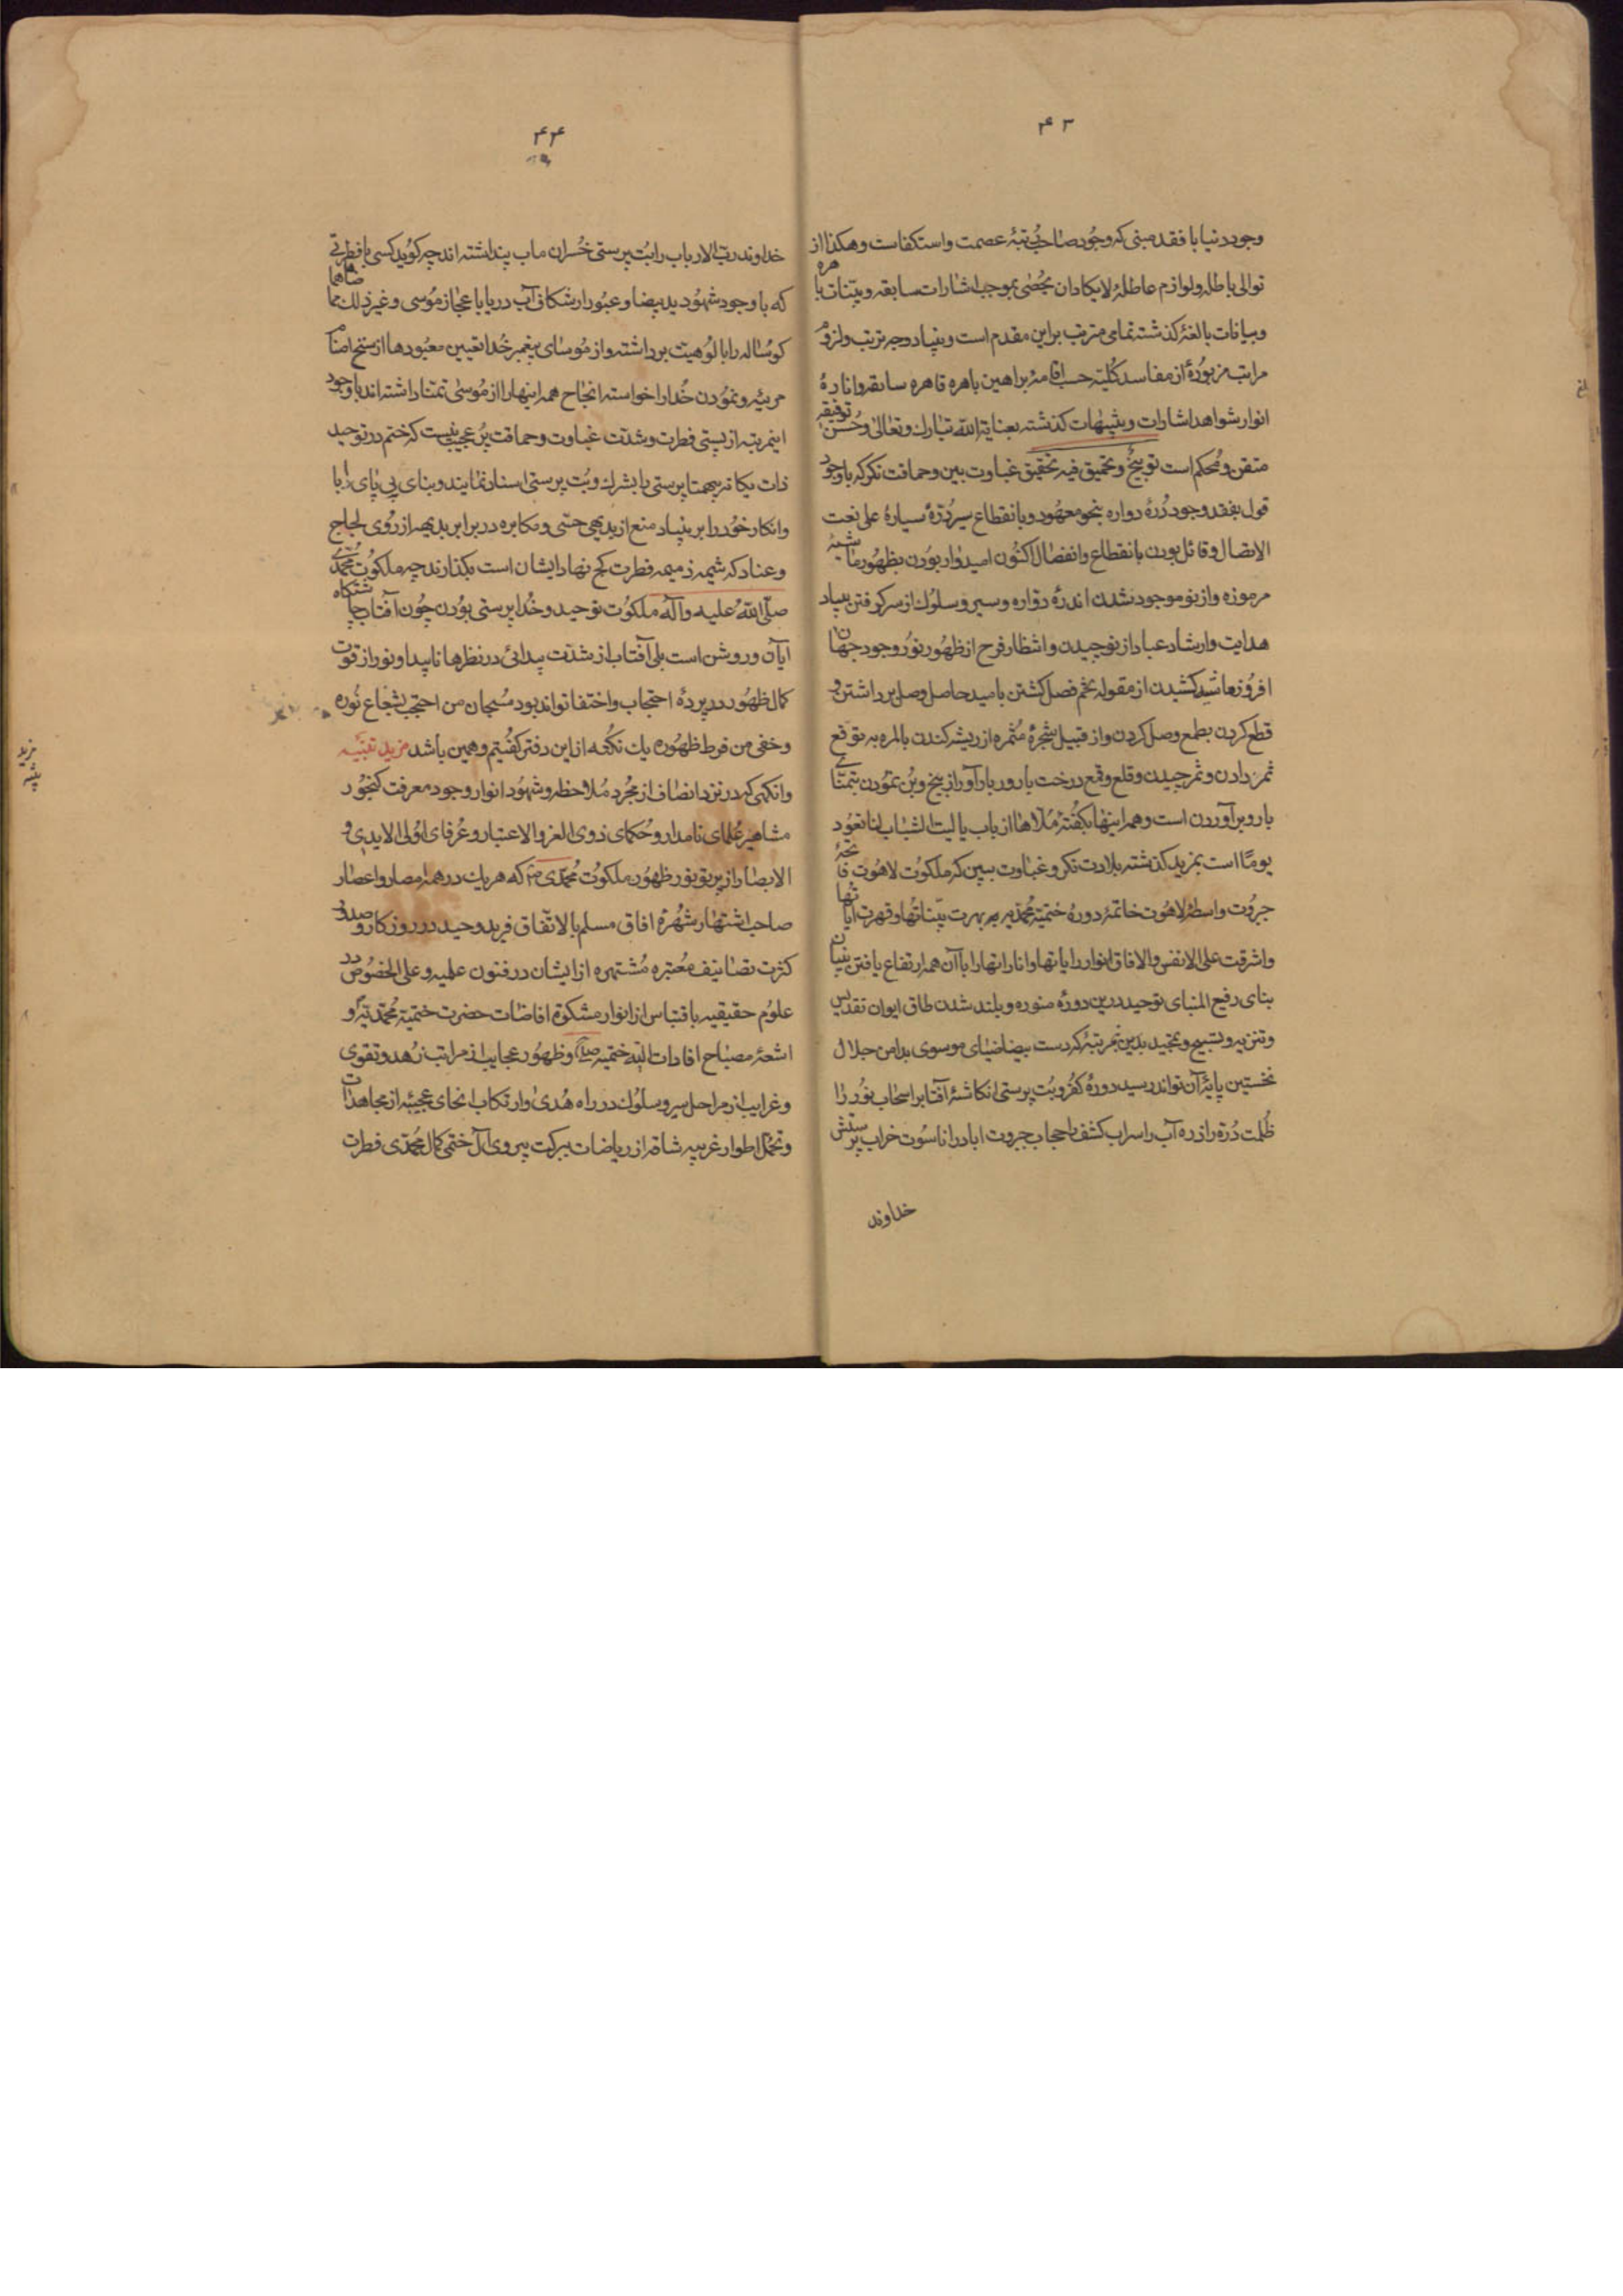 ۴۳
وجود دنیا با فقد مبنی که وجود صاحب رتبهٔ عصمت و استکفاست و هکذا از
توالی باطله و لوازم عاطلهٔ لا یکاد ان یحصٰی بموجب اشارات سابقه و بیّنات باهره
و بیانات بالغهٔ گذشته تمامی مترتب بر این مقدم است و بنیاد وجه ترتیب و لزوم
مراتب مزبورهٔ از مفاسد کلیّه حسب اقامهٔ براهین باهره قاهره سابقه و انارهٔ
انوار شواهد اشارات و تنبیهات گذشته بعنایة الله تبارک و تعالیٰ و حُسن توفیقه
متقن و مُحکم است توبیخٌ و تحمیق فیه تحقیق غباوت بین و حماقت نگر که باوجود
قول بفقد وجود دُرّهٔ دواره بنحو معهود و بانقطاع سیر دُرّهٔ سیارهٔ علی نعت
الاتصال و قائل بودن بانقطاع و انفصال اکنون امیدوار بودن بظهور ماشیهٔ
مرموزه و از نو موجود شدن اندرهٔ دواره و سیر و سلوک از سر گرفتن بنیاد
هدایت و ارشاد عباد از نو چیدن و انتظار فرح از ظهور نور وجود جهان
افروز عاشد کشیدن از مقوله تخم فصل کشتن بامید حاصل وصل برداشتن و
قطع کردن بطمع وصل کردن و از قبیل شجرهٔ مُثمره از ریشه کندن بالمره به توقع
ثمر دادن و ثمر چیدن و قلع و قمع درخت بارور بارآور از بیخ و بُن نمودن بتمنّای
بار و بر آوردن است و همه اینها بگفتهٔ مُلّاها از باب یا لیت الشباب لنا یعُود
یومًا است بمزید گذشته بلادت نگر و غباوت ببین که ملکوت لاهُوت فاتحهٔ
جبروت واسطهٔ لاهُوت خاتمهٔ دورهٔ ختمیّهٔ محمّدیه به بهرت بیّناتها و قهرت آیاتها
و اشرقت علی الانفس و الافاق انوار رایاتها و اناراتها را با آن همه ارتفاع یافتن بنیان
بنای رفیع المبنای توحید درین دورهٔ منوره و بلند شدن طاق ایوان تقدیس
و تنزیه و تسبیح و تمجید بدین مرتبهٔ که دست بیضا ضیای موسوی بدامن جلال
نخستین پایهٔ آن تواند رسید دورهٔ کفر و بُت پرستی انگاشتهٔ آفتاب را سحاب نُور را
ظُلمت دُرّه را زره آب را سراب کشف را حجاب جبروت اباد را ناسُوت خراب پرستش
خداوند
۴۴
خداوند ربّ الارباب را بُت پرستی خُسران مآب پنداشته اند چه گوید کسی با فطرتی
که با وجود شهُود ید بیضا و عبُور از شکاف آب دریا با عجاز مُوسی و غیر ذلک مما ضاهاها
گوساله را با لُوهیت برداشته و از مُوسای پیغمبر خُدا تعیین معبودها از سنخ اصنام
مرئیه و نمُودن خُدا را خواسته انجاح همه اینها را از مُوسیٰ تمنّا داشته اند با وجود
اینمرتبه از پستی فطرت و شدّت غباوت و حماقت پُر عجیب نیست که ختم در توحید
ذات یگانه بیهمتا پرستی با بشرک و بُت پرستی اسناد نمایند و بنای بی پای را با
و انکار خود را بر بنیاد منع از بدیهی حسّی و مکابره در برابر بدیهه از رُوی لجاج
و عناد که شیمه ذمیمه فطرت کج نهاد ایشان است بگذارند چه ملکوُت مُحمّدی
صلّی اللهُ علیه و آله ملکوُت توحید و خُدا پرستی بودن چون آفتاب چاشتگاه
آیان و روشن است بلی آفتاب از شدّت پیدائی در نظرها ناپیدا و نور از قوت
کمال ظهور در پردهٔ احتجاب و اختفا تواند بود سُبحان من احتجب بشعاع نُوره
و خفی من فرط ظهُوره یک نکُته از این دفتر گفُتیم و همین باشد مزید تنبیه
وانگهی که در نزد انصاف از مُجرد مُلاحظه و شهُود انوار وجود معرفت گنجُور
مشاهیر علمای نامدار و حُکمای ذوی العز و الاعتبار و عُرفای اُولی الایدی و
الابصار از پرتو نور ظهُور ملکوُت مُحمّدی ص که هر یک در همه امصار و اعصار
صاحب اشتهار شُهرة افاق مسلم بالاتفاق فرید وحید در روزگار و صدور
کثرت تصانیف مُعتبره مُشتهره از ایشان در فنون علمیه و علی الخصوص در
علوُم حقیقیه باقتباس از انوار مشکوة افاضات حضرت ختمیّه مُحمّدیّه و
اشعهٔ مصباح افادات الیّه ختمیه و ظهُور عجایب از مراتب زُهد و تقوی
و غرایب از مراحل سیر و سلوُک در راه هُدیٰ و ارتکاب انحای عجیبه از مجاهدات
و تحمّل اطوار غریبه شاقه از ریاضات ببرکت پیروی آل ختمی کمال مُحمّدی فطرت
مزید